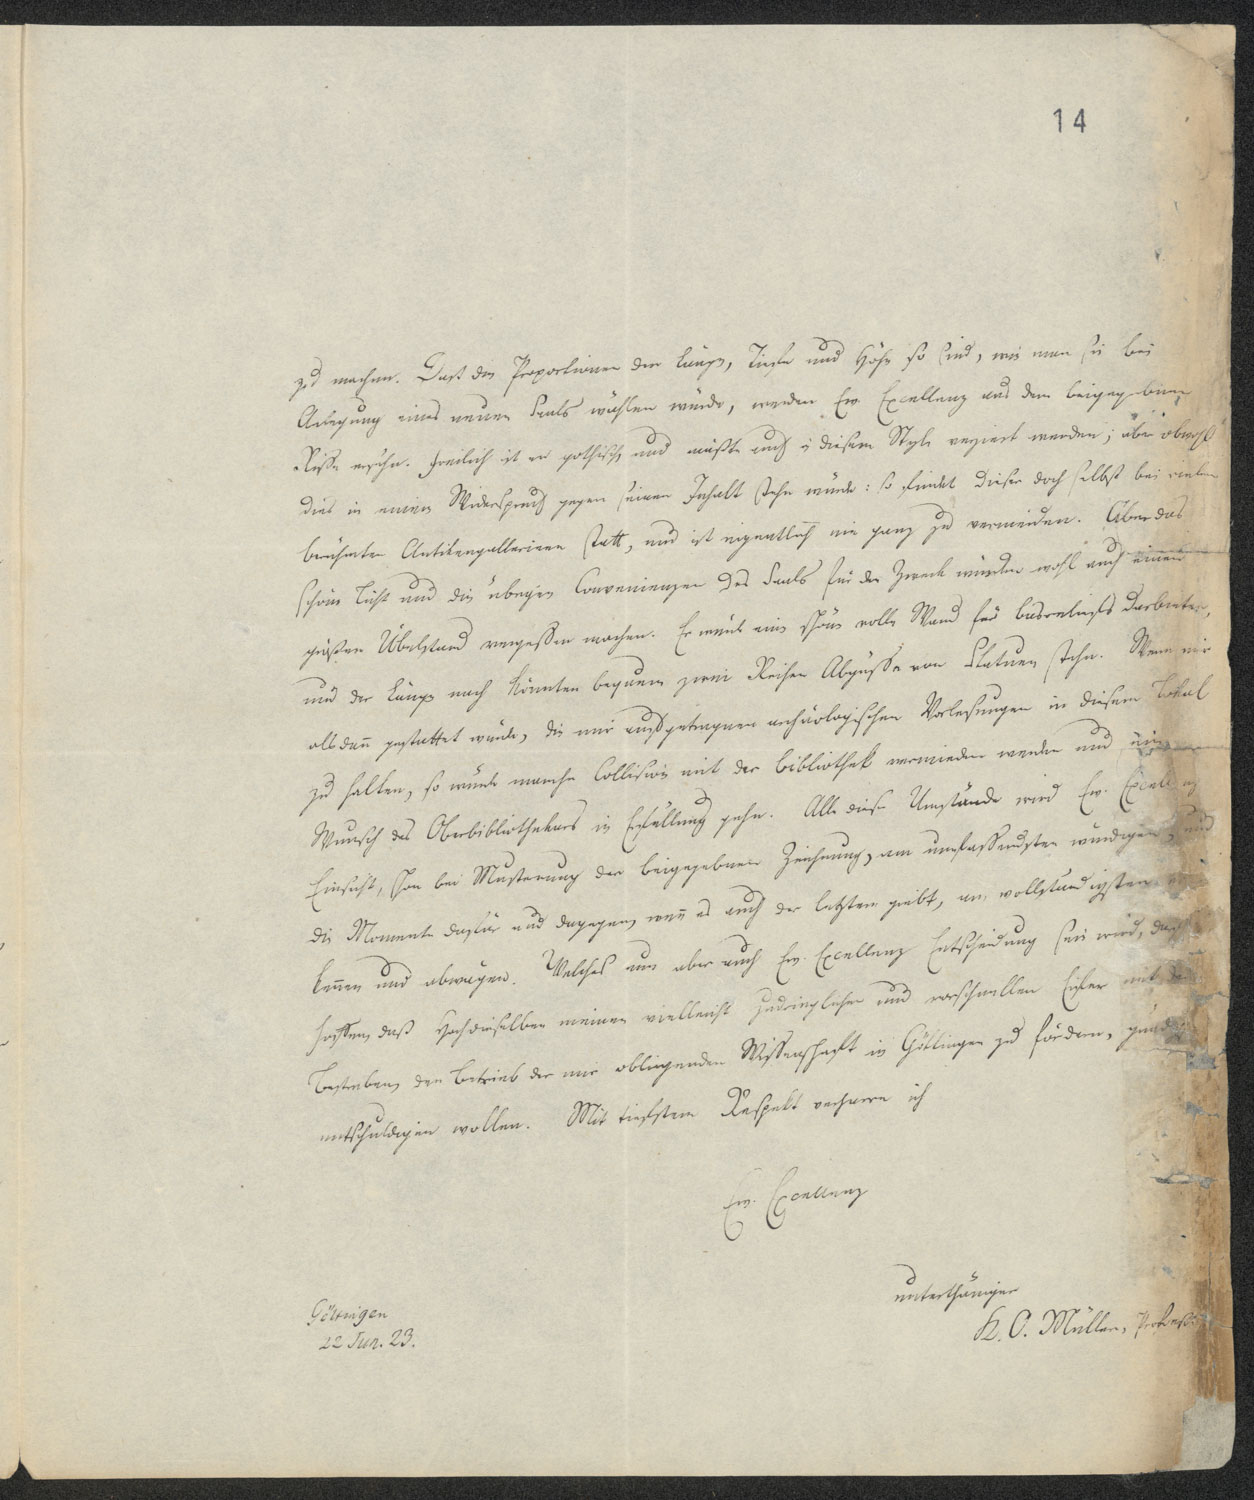 14
zu machen. Daß die Proportionen der Länge, Tiefe und Höhe so sind, wie man sie bei
Anlegung eines neuen Saals wählen würde, werden Ew. Excellenz aus dem beigegebnen
Risse ersehn. Freilich ist er gothisch, und müßte auch in diesem Style verziert werden; aber obwohl
dies in einem Widerspruch gegen seinen Inhalt stehn würde: so findet dieser doch selbst bei vielen
berühmten Antikengallerieen statt, und ist eigentlich nie ganz zu vermeiden. Aber das
schöne Licht und die übrigen Convenienzen des Saals für den Zweck würden wohl auch einen
größern Übelstand vergessen machen. Er würde eine schöne volle Wand für Basreliefs darbieten,
und der Länge nach könnten bequem zwei Reihen Abgüsse von Statuen stehn. Wenn mir
alsdann gestattet würde, die mir aufgetragnen archäologischen Vorlesungen in diesem Lokal
zu halten, so würde manche Collision mit der Bibliothek vermieden werden und ein
Wunsch des Oberbibliothekars in Erfüllung gehn. Alle diese Umstände wird Ew. Excellenz
Einsicht, schon bei Musterung der beigegebnen Zeichnung, am umfassendsten würdigen, und
die Momente dafür und dagegen, wenn es auch der letztern giebt, am vollständigsten
kennen und abwägen. Welches nun aber auch Ew. Excellenz Entscheidung sein wird,
hoffen, daß Hochdieselben meinen vielleicht zudringlichen und vorschnellen Eifer mit dem
Bestreben, den Betrieb der mir obliegenden Wissenschaft in Göttingen zu fördern,
entschuldigen wollen. Mit tiefstem Respekt verharre ich
Ew. Excellenz
unterthäniger
K. O. Müller, Professor
Göttingen
22 Jun. 23.